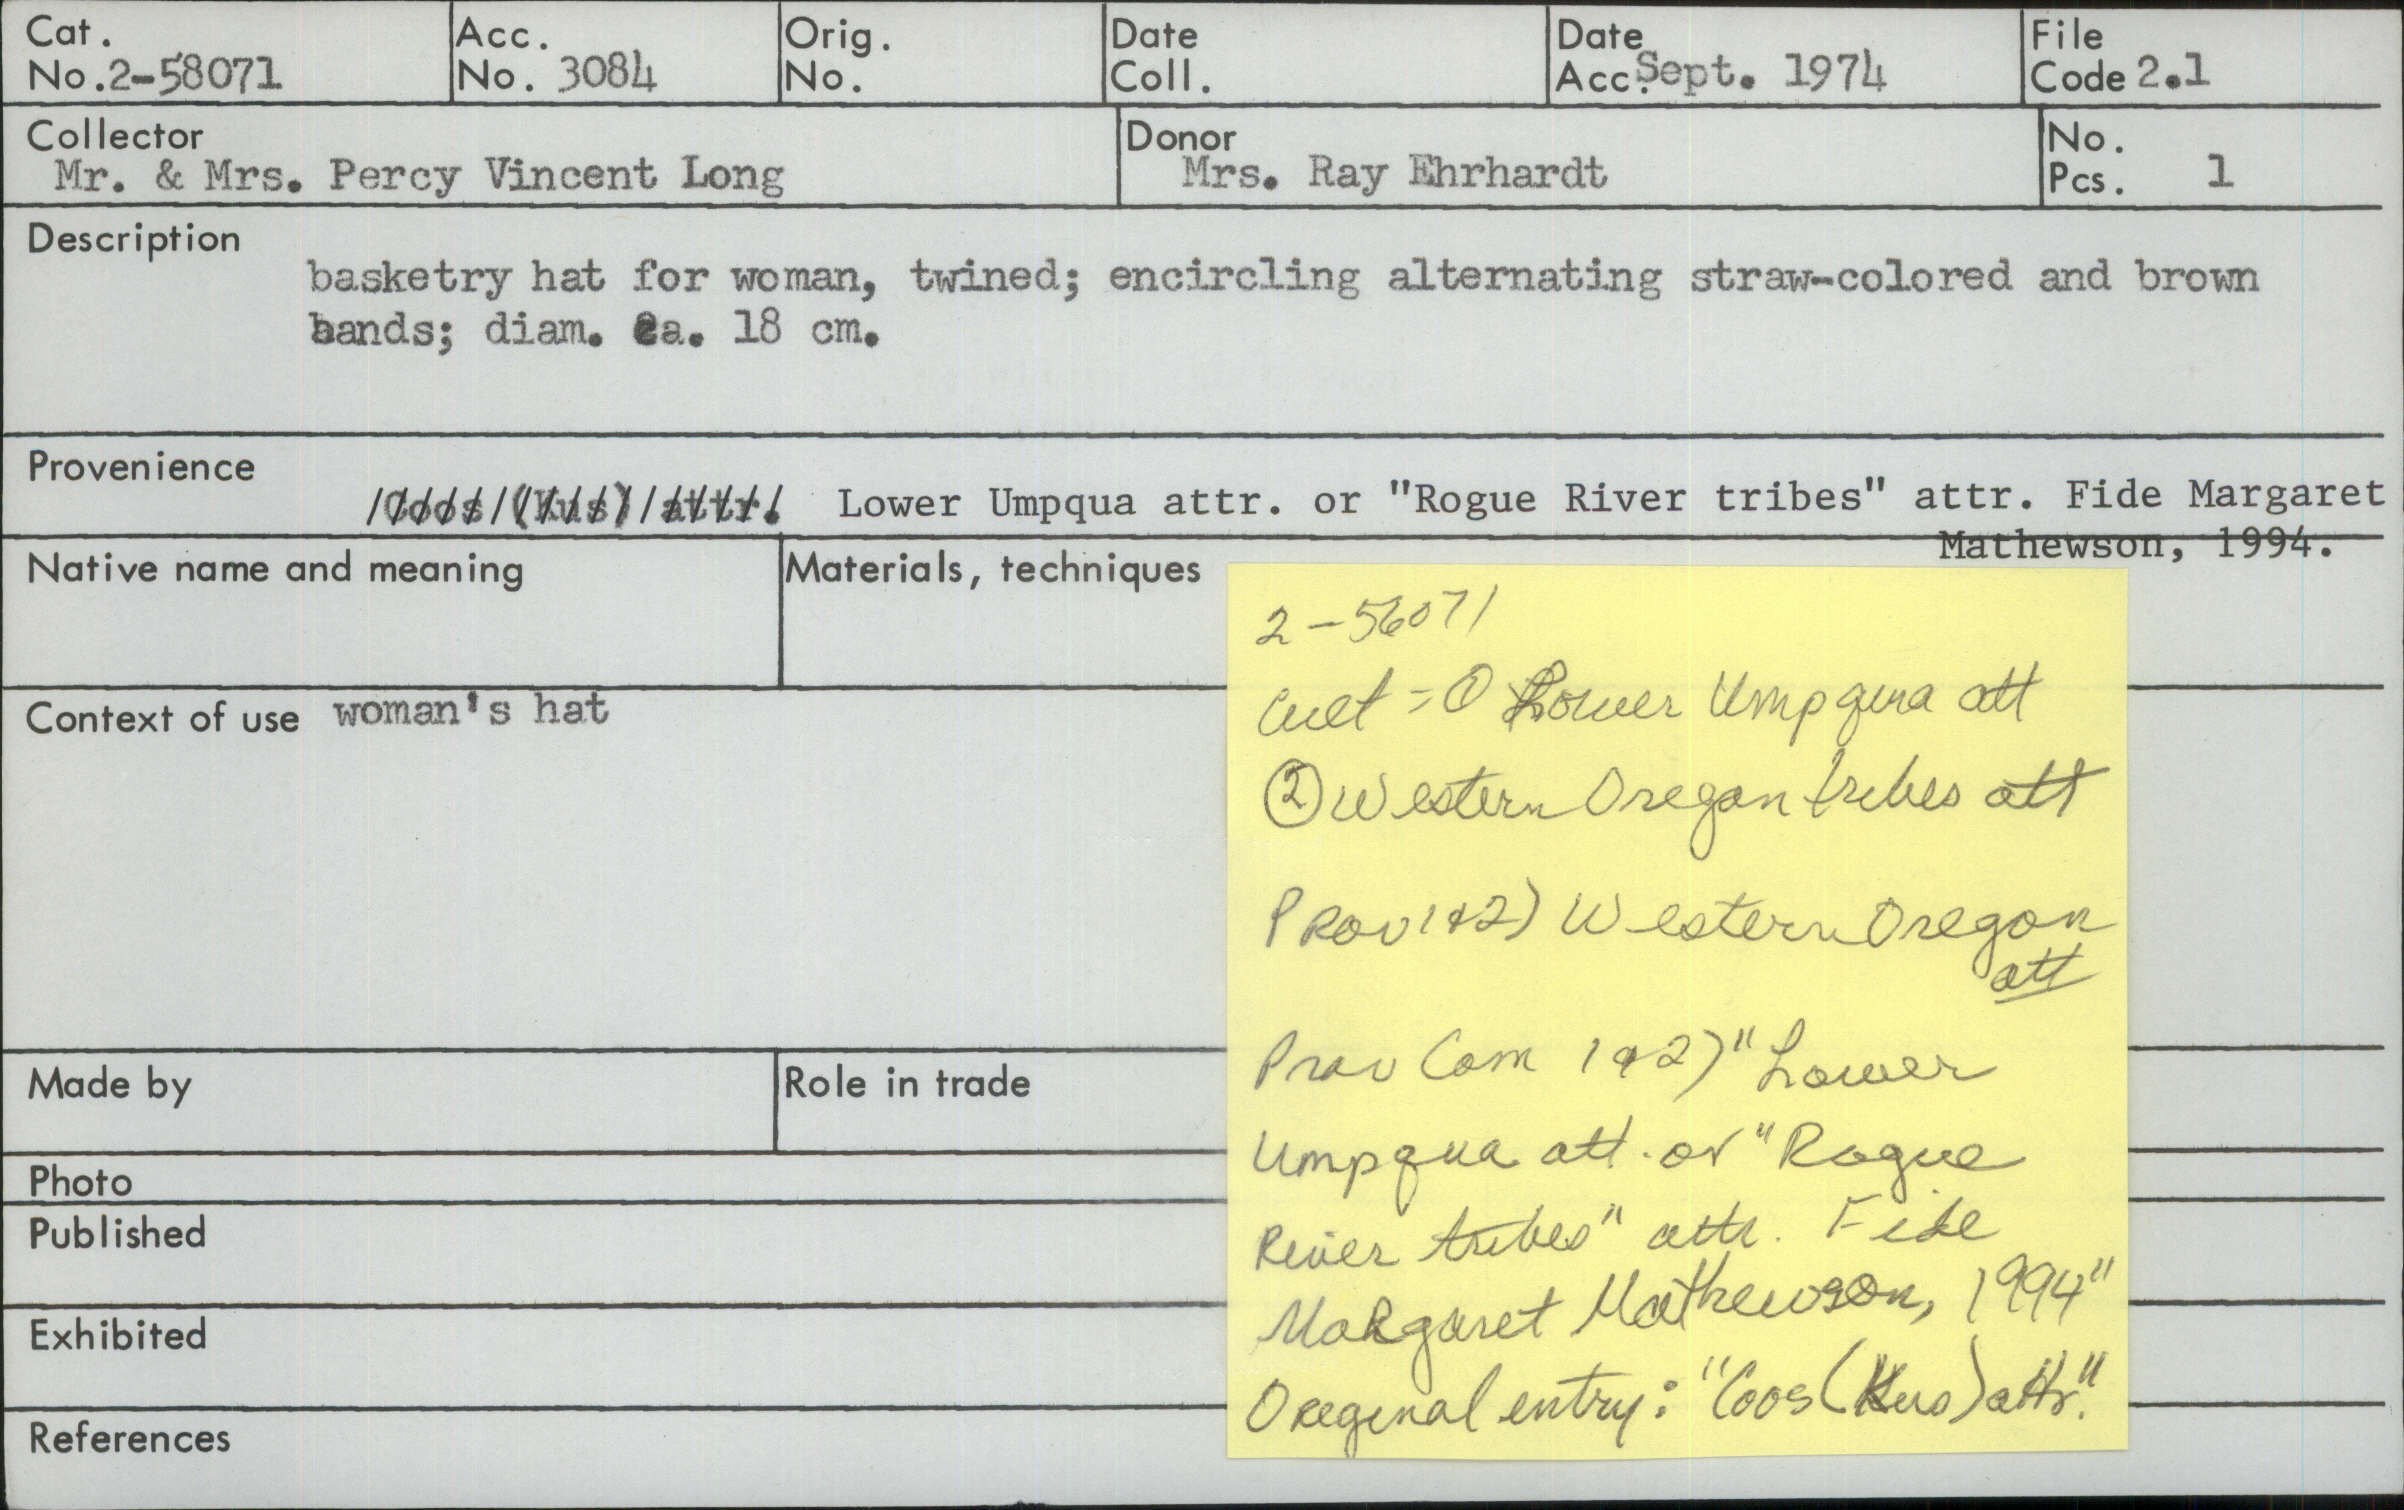 Cat. No. 2-58071
Acc. No. 3084
Orig. No.
Date Coll.
Date Acc. Sept. 1974
File Code 2.1
Collector
Mr. & Mrs. Percy Vincent Long
Donor
Mrs. Ray Ehrhardt
No. Pcs. 1
Description
basketry hat for woman, twined; encircling alternating straw-colored and brown
bands; diam. ca. 18 cm.
Provenience
Coos (Kus) attr. Lower Umpqua attr. or "Rogue River tribes" attr. Fide Margaret
Mathewson, 1994.
Native name and meaning
Materials, techniques
Context of use woman's hat
Made by
Role in trade
Photo
Published
Exhibited
References
2-56071
Cult = ① Lower Umpqua att
② Western Oregon tribes att
Prov 1&2) Western Oregon
att
Prov Com 1&2) "Lower
Umpqua att. or "Rogue
River tribes" attr. Fide
Margaret Mathewson, 1994"
Original entry: "Coos (Kus) attr."